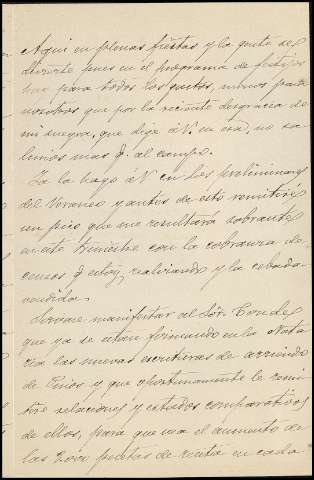 Aqui en plenas fiestas y la gente se
divierte pues en el programa de festejos
hay para todos los gustos, menos para
nosotros que por la reciente desgracia de
mi suegra, que dije á V. en esa, no sa-
limos mas q. al campo.
Ya la hago á V. en los preliminares
del Veraneo y antes de ésto remitiré
un pico que me resultará sobrante
en este trimestre con la cobranza de
censos q estoy realizando y la cebada
vendida.
Sirvase manifestar al Sor. Conde
que ya se estan firmando en la Nota-
ria las nuevas escrituras de arriendo
de Pinos y que oportunamente le remi-
tiré relaciones y estados comparativos
de ellos, para que vea el aumento de
las pesetas de renta en cada